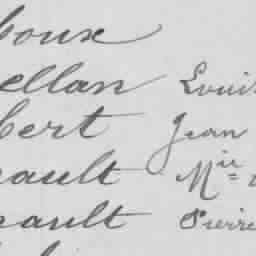 boux
ellan Louis
bert Jean
ault Mie
ault Pierre